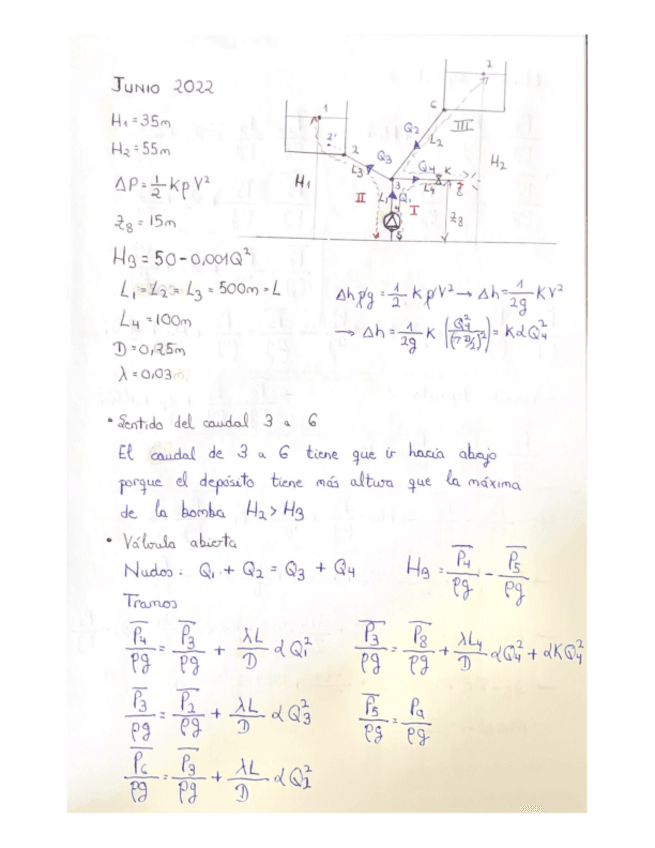 JUNIO 2022
H₁ = 35m
H₂ = 55m
ΔP = 1/2 K ρ V²
z₈ = 15m
Hg = 50 - 0,001Q²
L₁ = L₂ = L₃ = 500m = L
L₄ = 100m
D = 0,25m
λ = 0,03m
1
2'
2
H₁
Q₃
L₃
II
Q₂
L₂
III
6
7
H₂
Q₄
K
L₄
8
3
L₁
Q₁
I
4
5
z₈
Δh ρg = 1/2 K ρ V² → Δh = 1/2g K V²
→ Δh = 1/2g K (Q₄²/(πD/2)²) = K α Q₄²
• Sentido del caudal 3 a 6
El caudal de 3 a 6 tiene que ir hacia abajo
porque el depósito tiene más altura que la máxima
de la bomba H₂ > H₃
• Válvula abierta
Nudos: Q₁ + Q₂ = Q₃ + Q₄ Hg = P̅₄/ρg - P̅₅/ρg
Tramos
P̅₄/ρg = P̅₃/ρg + λL/D α Q₁² P̅₃/ρg = P̅₈/ρg + λL₄/D α Q₄² + α K Q₄²
P̅₃/ρg = P̅₂/ρg + λL/D α Q₃² P̅₅/ρg = Pₐ/ρg
P̅₆/ρg = P̅₃/ρg + λL/D α Q₂²